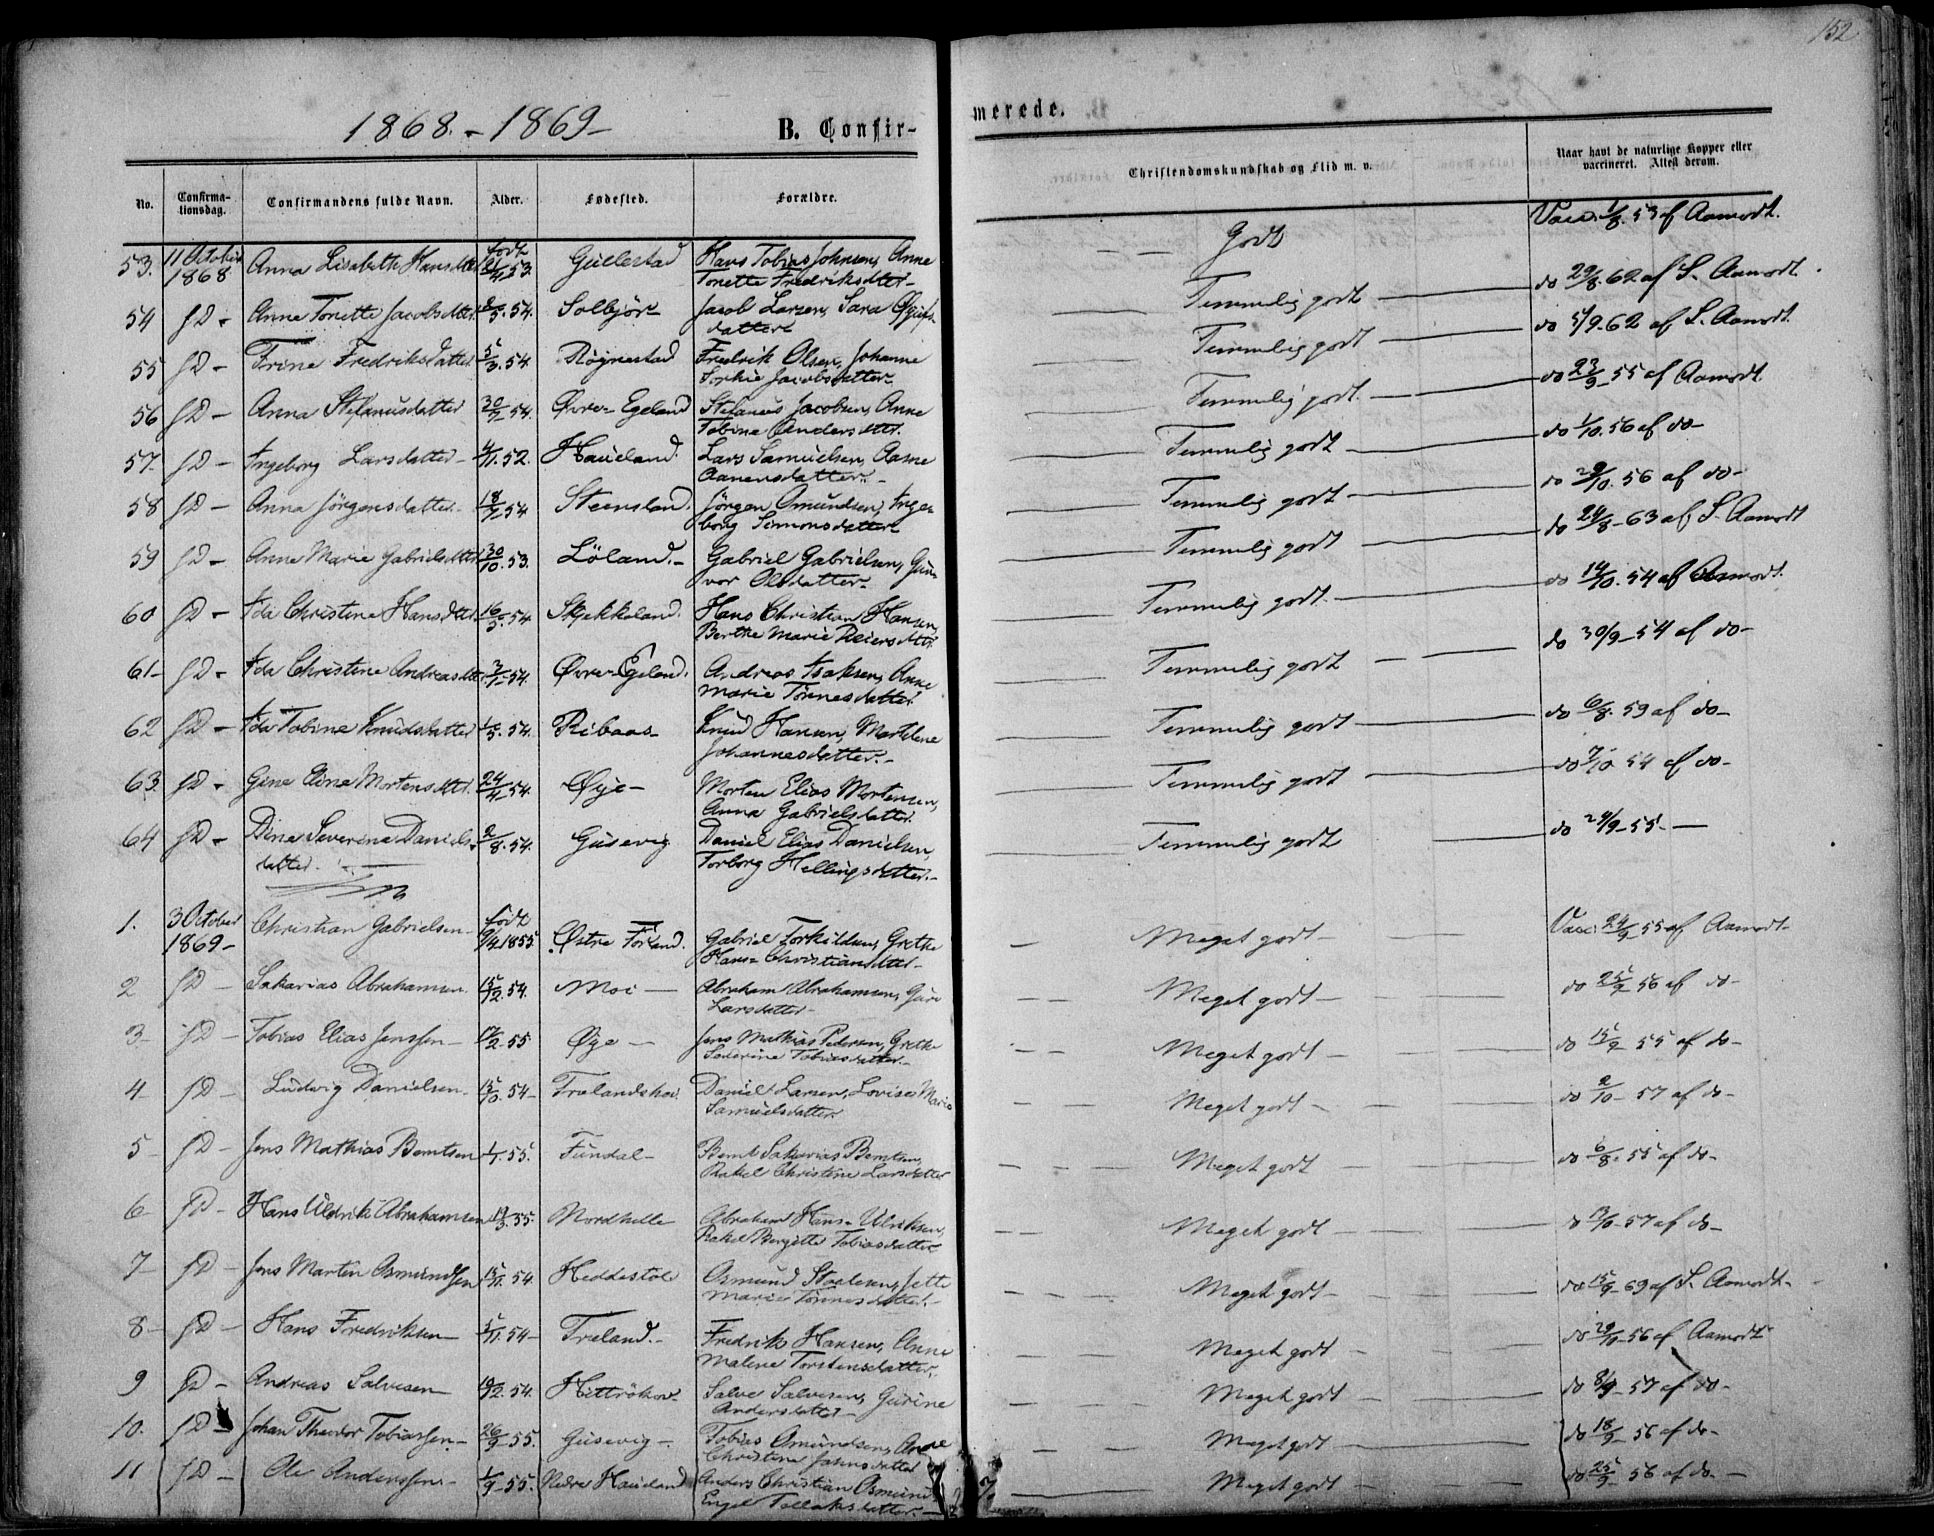 152
1868. - 1869 -
B. Confir-
merede.
No.
Confirma-
tionsdag.
Confirmandens fulde Navn.
Alder.
Fødested.
Forældre.
Christendomskundskab og Flid m. v.
Naar havt de naturlige Kopper eller
vaccineret. Attest derom.
53. 11 October 1868 Anna Lisabeth Hansdtter født 21/4 53. Gullestad Hans Tobias Johnsen, Anne Godt Vacc. 1/8. 53 af Aamodt.
Tonette Fredriksdtter -
54 JD - Anne Tonette Jacobsdtter 2/5. 54. Solbjör Jacob Larsen, Sara Temmelig godt do 29/8. 62 af S. Aamodt.
datter
55 JD - Trine Fredriksdatter 5/3. 54. Røgnestad Fredrik Olsen, Johanne Temmelig godt do 5/9. 62 af S. Aamodt.
Sophie Jacobsdatter -
56 JD - Anna Stefanusdatter 30/7 54. Øvre Egeland Stefanus Jacobsen, Anne Temmelig godt. do 23/9 - 55 af Aamodt
Tobine Andersdtter.
57. JD - Ingeborg Larsdatter - 4/11. 52. Haueland. Lars Samuelsen, Aasne Temmelig godt - do 1/10. 56 af do -
Aanensdatter. -
58 JD - Anna Jörgensdatter. 18/7 - 54 Steensland. Jörgen Osmundsen, Inge- Temmelig godt - do 29/10. 56 af do -
borg Simonsdatter
59 JD - Anne Marie Gabrielsdtter 30/10. 53. Löland. - Gabriel Gabrielsen, Gun- Temmelig godt do 24/8 - 63 af S. Aamodt
vor Olsdatter -
60 JD - Ida Christine Hansdtter 16/3. 54. Skjekkeland. Hans Christian Hansen, Temmelig godt. do 14/10. 54 af Aamodt.
Berthe Marie Reiersdtter
61 - JD - Ida Christine Andreasdtter 3/7 - 54. Øvre Egeland. Andreas Isaksen, Anne Temmelig godt do 30/9 - 54 af do -
Marie Tønnesdatter
62 JD - Ida Tobine Knudsdatter 1/5. 54. Ribaas - Knud Hansen, Marthine Temmelig godt do 6/8. 59 af do -
Johannesdatter. -
63. JD - Gine Eline Mortensdtter. 24/4 54. Øye - Morten Elias Mortensen, Temmelig godt do 7/10 54 af do -
Anna Gabrielsdatter
64 JD - Dine Severine Daniels- 2/8. 54. Gusevig Daniel Elias Danielsen, Temmelig godt do 29/9 - 55 -
datter. Torborg Hellingsdatter. -
1. 3 October 1869 - Christian Gabrielsen - født 9/4 1855 Østre Förland. Gabriel Torkildsen, Grethe Meget godt - Vacc. 24/9 55 af Aamodt -
Hans Christiansdtter -
2 JD - Sakarias Abrahamsen. 15/12. 54. Moi - Abraham Abrahamsen, Guri Meget godt - do 25/9 56 af do -
Larsdatter -
3 - JD - Tobias Elias Jenssen - 17/2 - 55 Øye - Jens Mathias Pedersen, Grethe Meget godt do 15/9 55 af do -
Severine Tobiasdatter. -
4 - JD - Ludvig Danielsen - 15/10. 54 - Trælandshei Daniel Larsen, Lovise Marie Meget godt - do 2/10 - 57 af do -
Samuelsdatter
5 - JD - Jens Mathias Berntsen 1/1. 55. Fundal - Bernt Sakarias Berntsen, Meget godt do 6/8. 55 af do -
Rakel Christine Larsdatter
6 - JD - Hans Uldrik Abrahamsen 19/3. 55. Nordhelle Abraham Hans Ulriksen, Meget godt do 13/10 - 57 af do -
Rakel Bergitte Tobiasdatter
7 - JD - Jens Martin Osmundsen 15/11. 54. Heddestöl Osmund Staalesen, Jette Meget godt - do 15/9 - 69 af S. Aamodt -
Marie Tønnesdatter. -
8 - JD - Hans Fredriksen - 5/11. 54 - Træland. - Fredrik Hansen, Anne Meget godt do 29/10 - 56 af Aamodt
Malene Torstensdatter,
9 JD - Andreas Salvesen - 19/12. 54. Hettröhei Salve Salvesen, Gurine Meget godt do 8/9 - 57 af do -
Andersdatter -
10. JD - Johan Theodor Tobiassen - 26/9 - 55. Gusevig - Tobias Osmundsen, Anne Meget godt do 18/9 56 af do -
Christine Jahnsdatter
11 JD - Ole Anderssen - 1/9 - 55. Nedre Haueland Anders Christian Osmund Meget godt do 25/9 56 af do. -
Engel Tollaksdatter. -